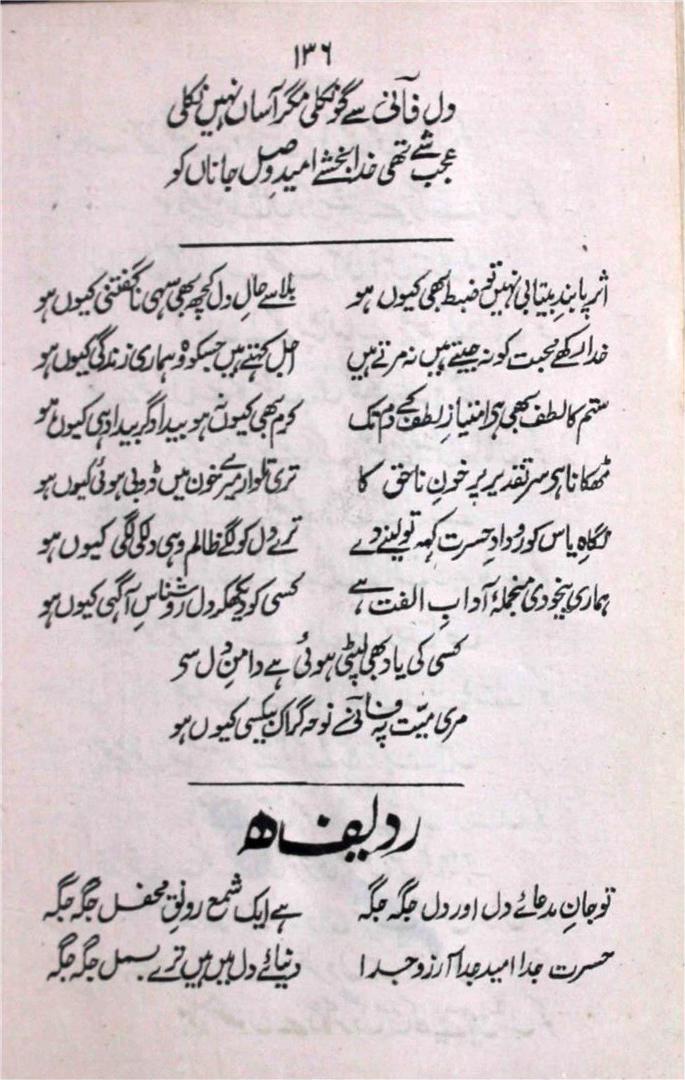 ۱۳۶
دلِ فانی سے گو نکلی مگر آساں نہیں نکلی
عجب شے تھی خدا بخشے امیدِ وصلِ جاناں کو
اثر پابندِ بیتابی نہیں تو ضبط بھی کیوں ہو بلا سے حالِ دل کچھ بھی سہی ناگفتنی کیوں ہو
خدا رکھے محبت کو نہ جیتے ہیں نہ مرتے ہیں اجل کہتے ہیں جسکو وہ ہماری زندگی کیوں ہو
ستم کا لطف بھی ہو امتیازِ لطف کے دم تک کرم بھی کیوں نہ ہو بیداد گر بیداد ہی کیوں ہو
ٹھکانا ہو سرِ تقدیر پر خونِ ناحق کا تری تلوار میرے خون میں ڈوبی ہوئی کیوں ہو
نگاہِ یاس کو رودادِ حسرت کہہ تو لینے دے ترے دل کو لگے ظالم وہی دل کی لگی کیوں ہو
ہماری بیخودی منجملۂ آدابِ الفت ہے کسی کو دیکھکر دل روشناسِ آگہی کیوں ہو
کسی کی یاد بھی لپٹی ہوئی ہے دامنِ دل سو
مری میّت پہ فانی نوحہ گر اک بیکسی کیوں ہو
ردیف ھ
تو جانِ مدعائے دل اور دل جگہ جگہ ہے ایک شمع رونقِ محفل جگہ جگہ
حسرت جدا امید جدا آرزو جدا دنیائے دل میں ہیں ترے بسمل جگہ جگہ